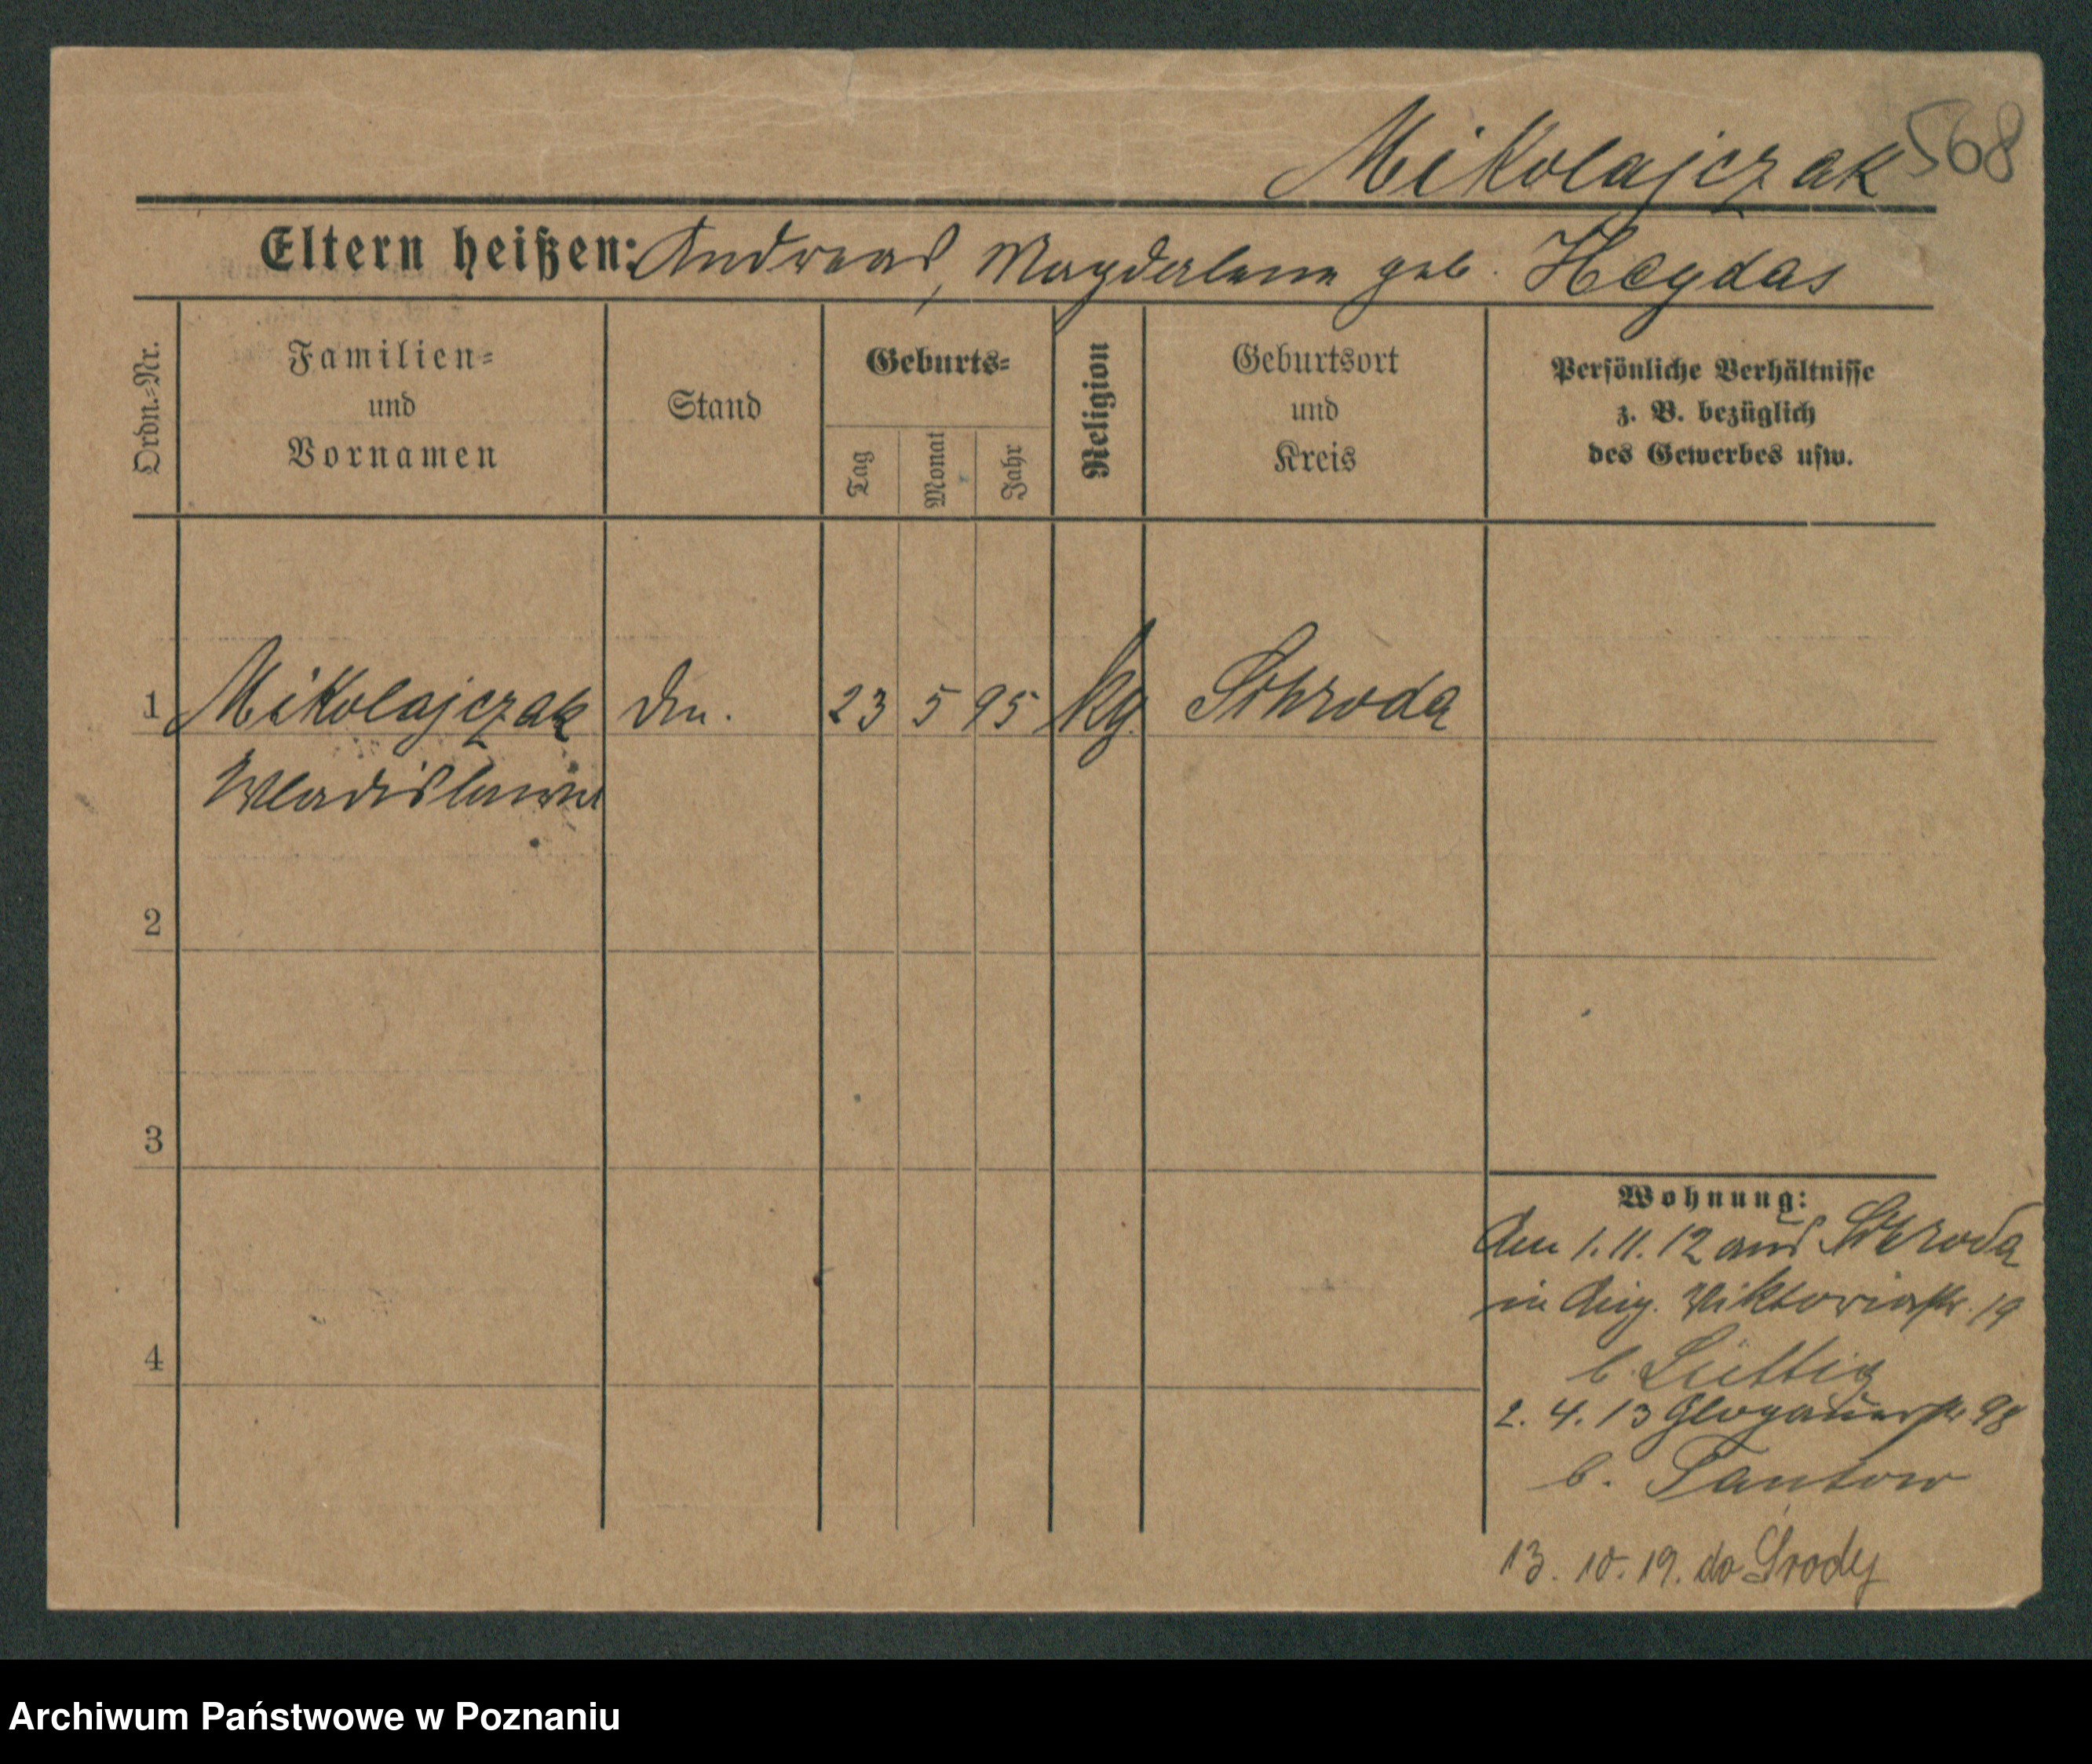 Mikolajczak 568
Eltern heißen: Andreas, Magdalena geb. Heydas
Ordn.-Nr.
Familien-
und
Vornamen
Stand
Geburts-
Tag
Monat
Jahr
Religion
Geburtsort
und
Kreis
Persönliche Verhältnisse
z. B. bezüglich
des Gewerbes usw.
1 Mikolajczak 23 5 95 Schroda
Wladislawa
2
3
4
Wohnung:
Am 1.11.12 aus Schroda
in Aug. Viktoriastr. 19
b.
2. 4. 13 Glogauerstr 98
b. Tantow
13. 10. 19. do Srody
Archiwum Państwowe w Poznaniu